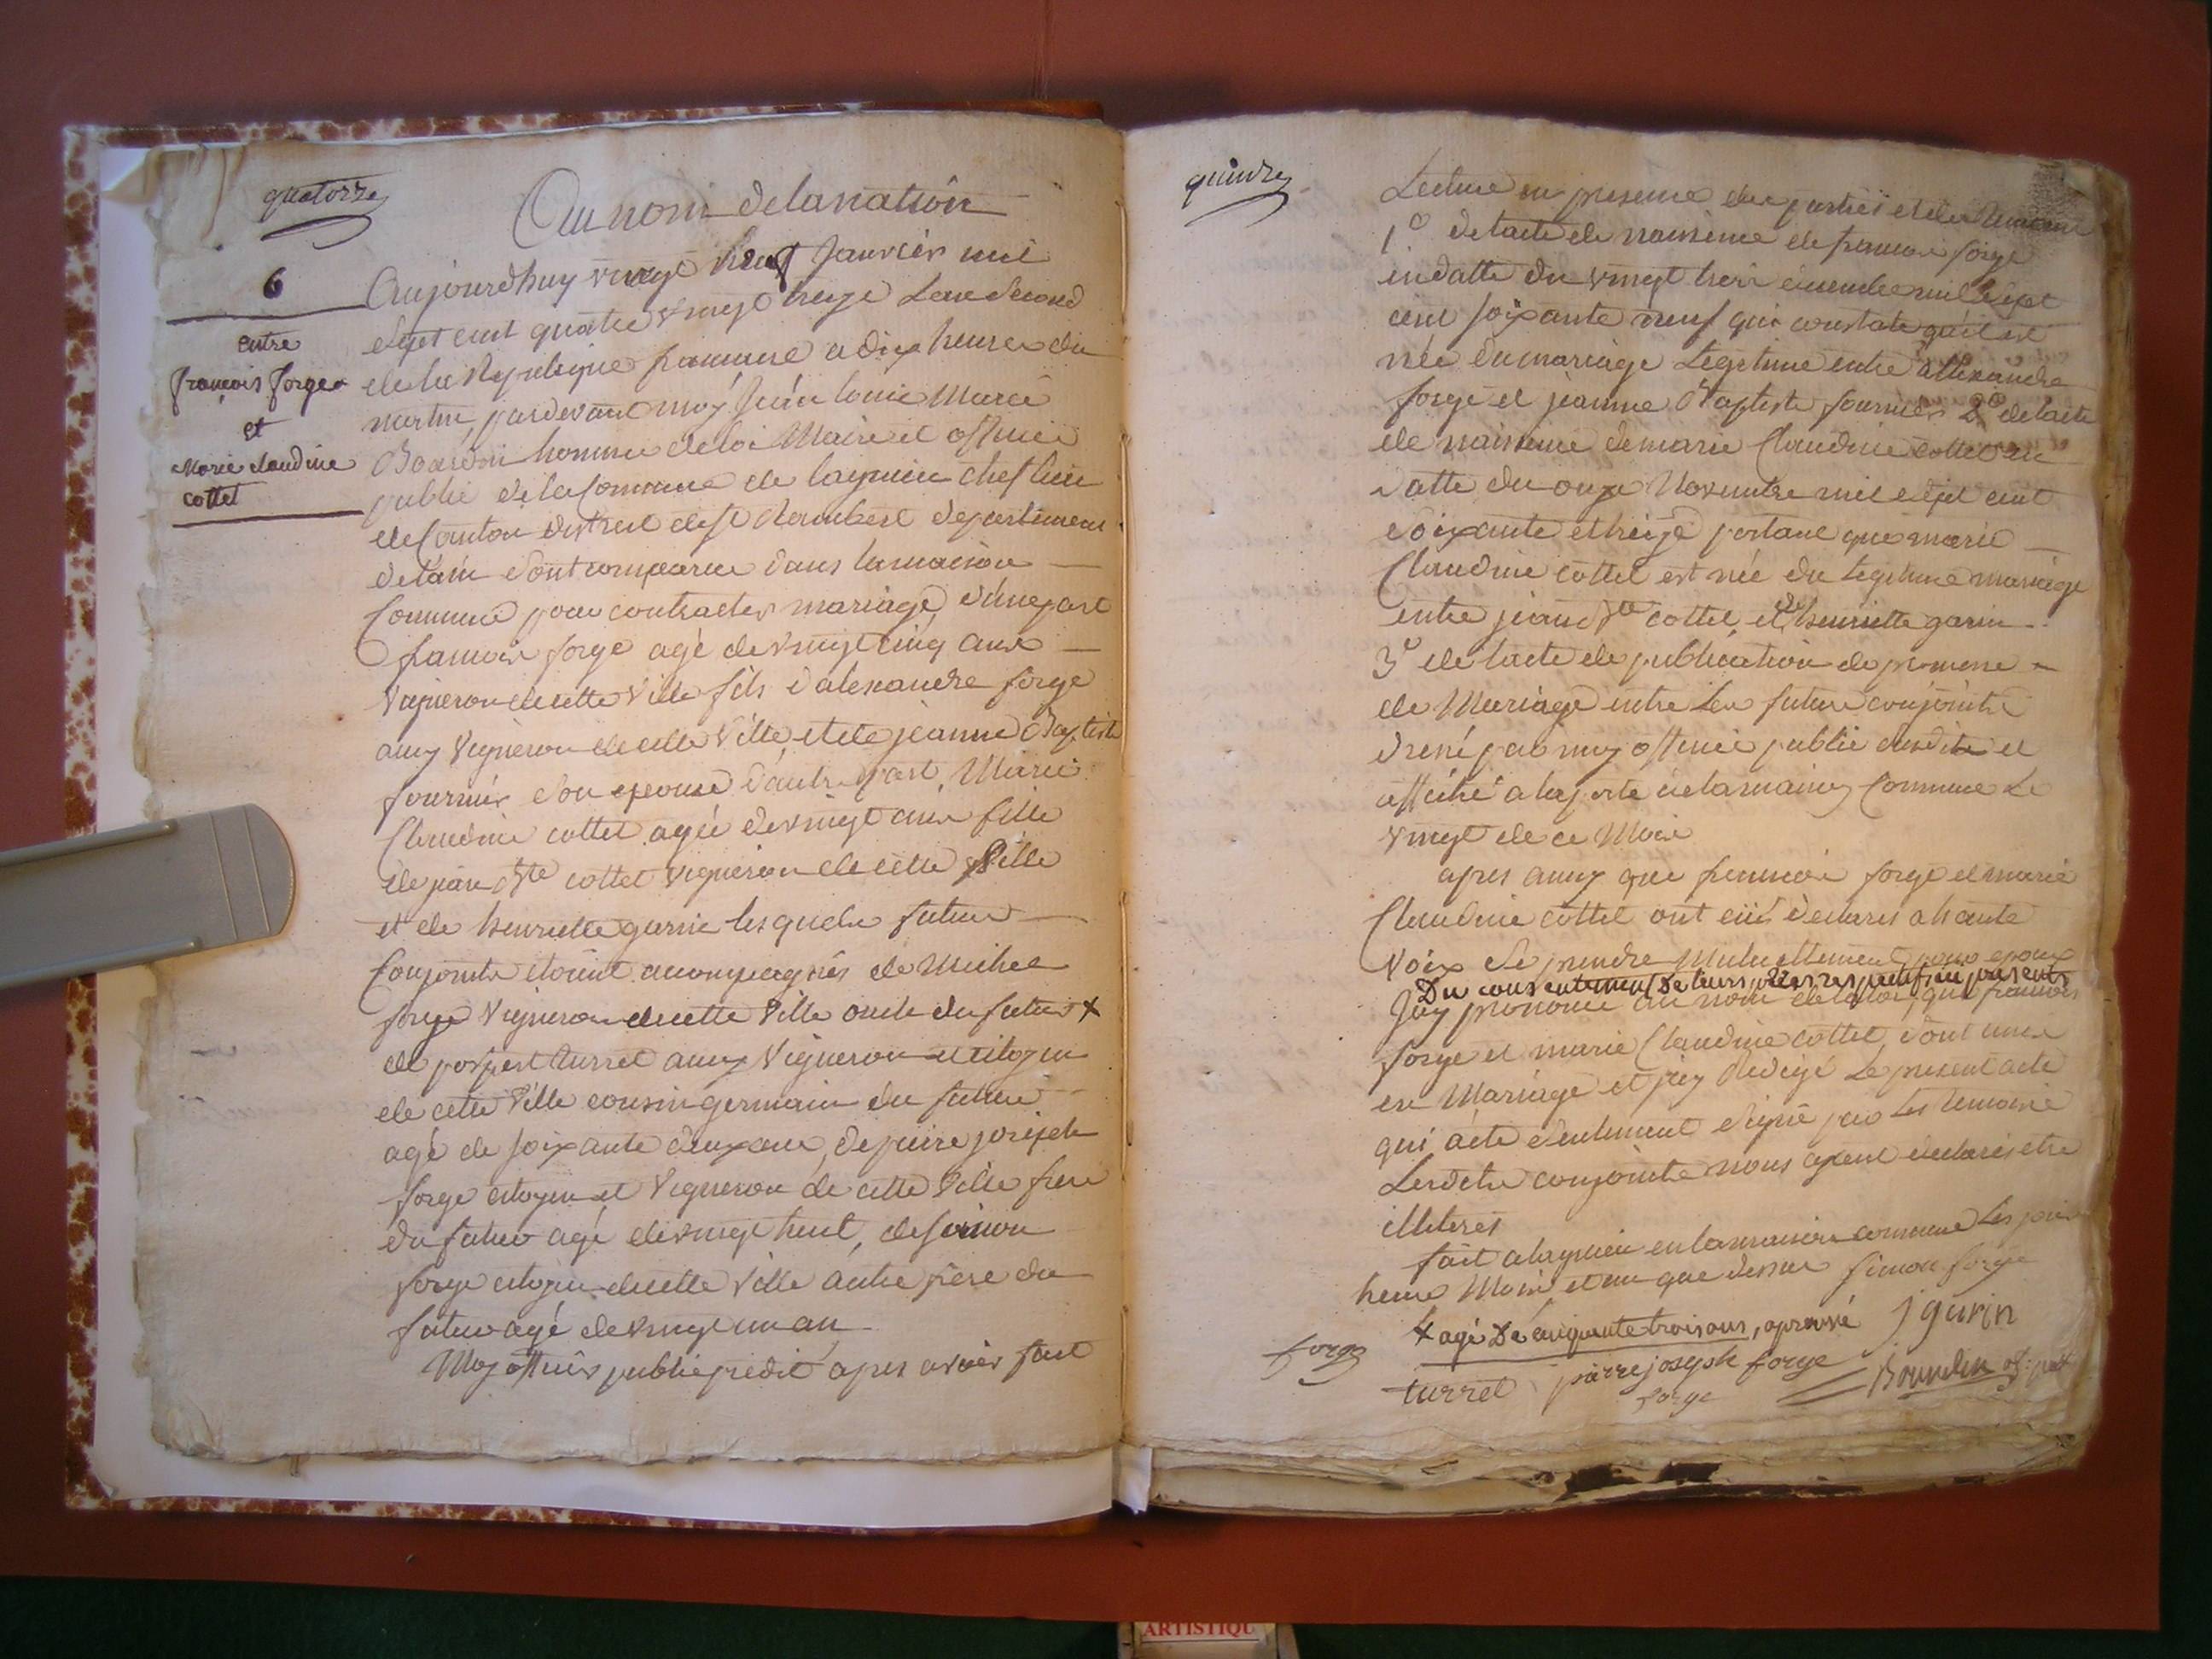 quatorze
Au nom de la nation
6
entre
françois forge
et
Marie claudine
cottet
Aujourdhuy vingt neuf Janvier mil
sept cent quatre vingt treize L'an second
de la Republique francaise a dix heures du
matin, pardevant moy Jean louis Marie
homme de loi Maire et officier
public de la Commune de lagnieu chef lieu
de Canton district de st Rambert departement
de l'ain sont comparus dans la maison
Commune pour contracter mariage, d'une part
francois forge agé de vingt cinq ans
vigneron de cette ville fils d'alexandre forge
aussy vigneron de cette ville, et de jeanne Baptiste
fournier son epouse d'autre part, Marie
Claudine cottet agée de vingt ans fille
de jean Bte cottet vigneron de cette ville
et de henriette garin lesquels futurs
Conjoints etoient accompagnés de Michel
forge vigneron de cette ville oncle du futur +
de turrel aussy vigneron et citoyen
de cette ville cousin germain du futur
agé de soixante deux ans, de pierre joseph
forge citoyen et vigneron de cette ville frere
du futur agé de vingt huit, de simon
forge citoyen de cette ville autre frere du
futur agé de vingt un an
Moy officier public predit apres avoir fait
quinze
Lecture en presence des parties et des temoins
1° de l'acte de naissance de francois forge
en datte du vingt trois decembre mil sept
cent soixante neuf qui constate qu'il est
née du mariage Legitime entre allexandre
forge et jeanne Baptiste fournier 2° de l'acte
de naissance de marie Claudine cottet en
datte du onze Novembre mil sept cent
soixante et treize portant que marie
Claudine cottet est née du legitime mariage
entre jean Bte cottet et de henriette garin
3° de l'acte de publication de promesse
de Mariage entre les futurs conjoints
dressé par moy officier public susdit et
affiché a la porte de la maison Commune Le
vingt de ce Mois
apres aussy que francois forge et marie
Claudine cottet ont eüs declarés a haute
voix se prendre mutuellement pour epoux
Du consentement de leurs peres respectifs ici presents
J'ay prononcé au nom de la loi, que francois
forge et marie Claudine cottet, sont unis
en Mariage et j'ay Redigé Le present acte
qui a été seulement signé par les temoins
Lesdits conjoints nous ayant declarés etre
illiterés
fait a lagnieu en la maison commune les jour
heure Mois et an que dessus simon forge
+ agé De cinquante trois ans, aprouvé j garin
forge
turrel pierre joseph forge
forge